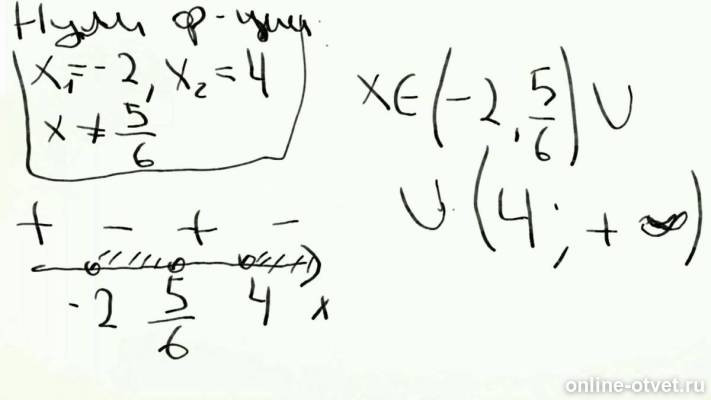 Нули ф-ции
x₁=-2, x₂=4
x≠5/6
x∈(-2, 5/6)∪
∪(4; +∞)
+ - + -
-2 5/6 4 x
online-otvet.ru